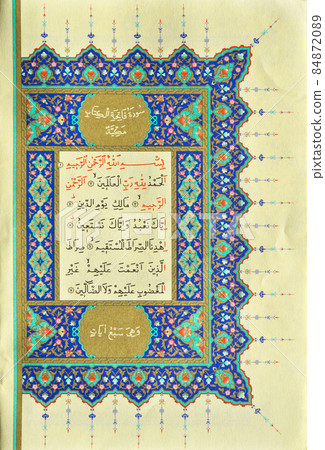 سورة فاتحة الكتاب
مكية
بِسْمِ اللّٰهِ الرَّحْمٰنِ الرَّحِيمِ
اَلْحَمْدُ لِلّٰهِ رَبِّ الْعَالَمِينَ اَلرَّحْمٰنِ
الرَّحِيمِ مَالِكِ يَوْمِ الدِّينِ
اِيَّاكَ نَعْبُدُ وَاِيَّاكَ نَسْتَعِينُ
اِهْدِنَا الصِّرَاطَ الْمُسْتَقِيمَ صِرَاطَ
الَّذِينَ اَنْعَمْتَ عَلَيْهِمْ غَيْرِ
الْمَغْضُوبِ عَلَيْهِمْ وَلَا الضَّالِّينَ
وهى سبع آيات
PIXTA
pixta.jp - 84872089